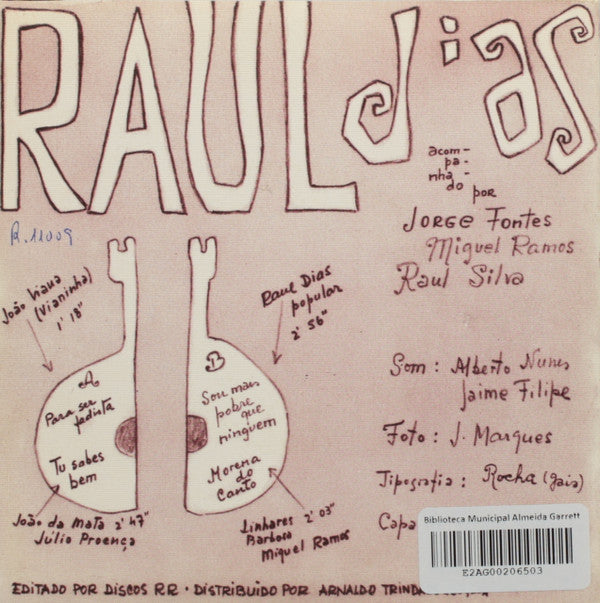 RAUL dias
acom-
pa-
nha-
do por
JORGE Fontes
Miguel Ramos
Raul Silva
R.11009
João Viana
(Vianinha)
1' 18"
Raul Dias
popular
2' 56"
A
Para ser
fadista
Tu sabes
bem
B
Sou mais
pobre que
ninguem
Morena
do
Canto
João da Mata 2' 47"
Júlio Proença
Linhares 2' 03"
Barbosa
Miguel Ramos
Som: Alberto Nunes
Jaime Filipe
Foto: J. Marques
Tipografia: Rocha (Gaia)
Capa
Biblioteca Municipal Almeida Garrett
E2AG00206503
EDITADO POR DISCOS RR · DISTRIBUIDO POR ARNALDO